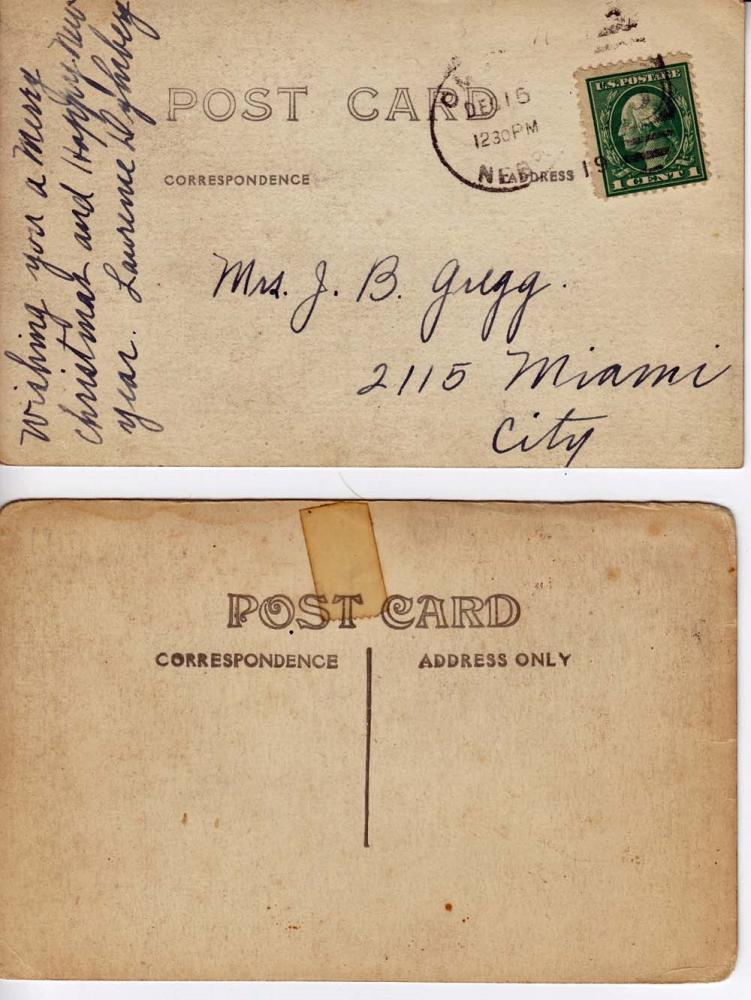 Wishing you a Merry
christmas and Happy New
year. Lawrence
POST CARD
CORRESPONDENCE
ADDRESS
DEC 15
1230 PM
NEB
19
U.S. POSTAGE
1 CENT 1
Mrs. J. B. Gregg.
2115 Miami
City
POST CARD
CORRESPONDENCE
ADDRESS ONLY